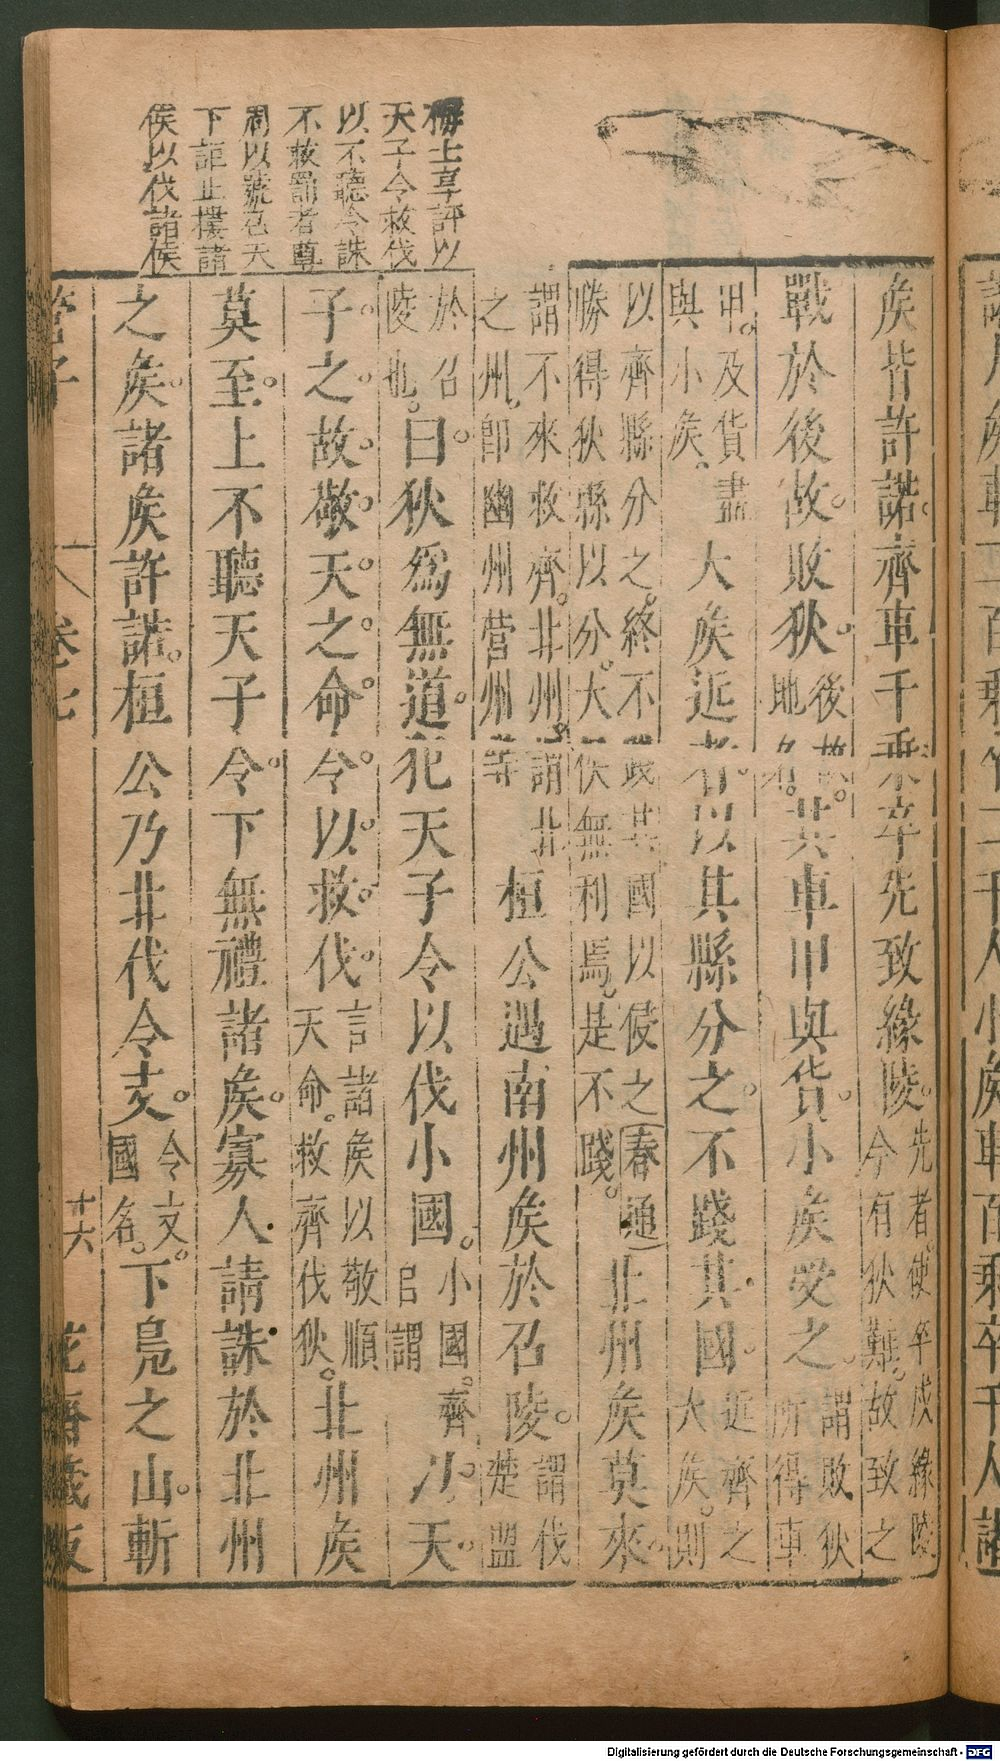 諸矦車二百乘卒二千人小矦車百乘卒千人諸
矦皆許諾。齊車千乘卒先致緣陵。先者使卒戍緣陵
今有狄難。故致之
戰於後故。敗狄。後故
地名。其車甲與貨。小矦受之。謂敗狄
所得車
甲。及貨盡
與小矦。大矦近者。以其縣分之。不踐其國。近齊之
大矦。則
以齊縣分之。終不踐其國以侵之(春通)
勝得狄縣以分。大侯無利焉。是不踐。北州矦莫來。
謂不來救齊。北州。謂北
之州。卽幽州營州等桓公遇南州矦於召陵。謂伐
楚盟
於召
陵也。曰。狄爲無道。犯天子令以伐小國。小國。齊
自謂以天。
子。之。故。敬。天。之。命。令。以。救。伐。言諸矦以敬順
天命。救齊伐狄。北州矦
莫至。上不聽天子令。下無禮諸矦。寡人請誅於北州
之矦。諸矦許諾。桓公乃北伐令支。令支。
國名。下鳧之山。斬
梅士享評以
天子令救伐
以不聽令誅
不救罰者尊
周以號召天
下詎止摟諸
侯以伐諸侯
管子 卷七 十六 花齋藏板
Digitalisierung gefördert durch die Deutsche Forschungsgemeinschaft - DFG